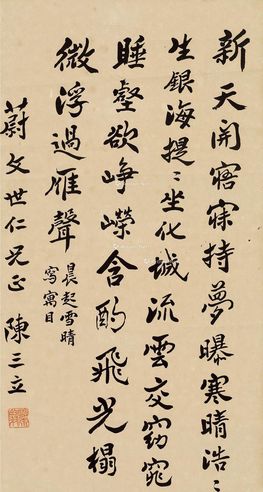 新天開寤寐持夢曝寒晴浩〻
生銀海提〻坐化城流雲交窈窕
睡壑欲崢嶸含酌飛光榻
微浮過雁聲 晨起雪晴
寫寓目
蔚文世仁兄正 陳三立